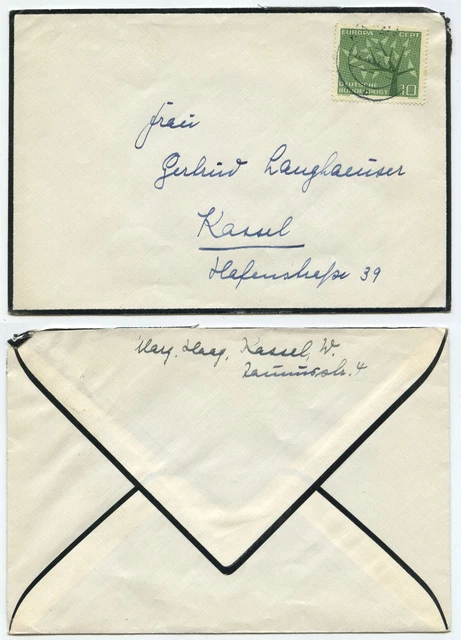 EUROPA CEPT
DEUTSCHE
BUNDESPOST 10
Frau
Gertrud Langhaeuser
Kassel
Hafenstraße 39
Marg. Haag, Kassel, W.
Taunusstr. 4